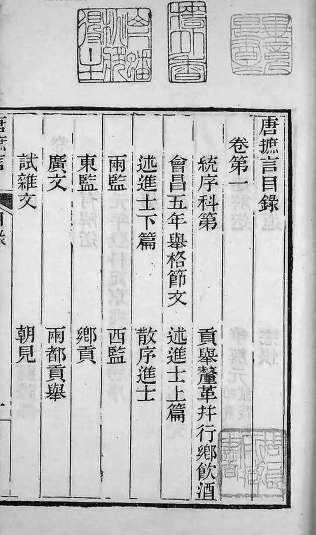 唐摭言目錄
卷第一
統序科第　貢舉釐革幷行鄉飲酒
會昌五年舉格節文　述進士上篇
述進士下篇　散序進士
兩監　西監
東監　鄉貢
廣文　兩都貢舉
試雜文　朝見